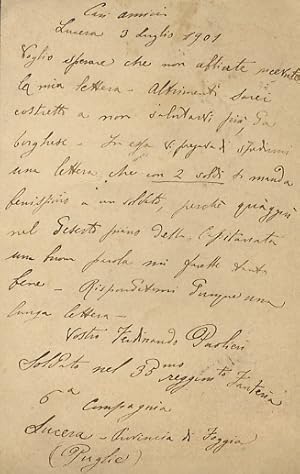 Cari amici
Lucera 3 Luglio 1901
Voglio sperare che non abbiate ricevuto
la mia lettera - Altrimenti sarei
costretto a non salutarvi più, da
borghese - In essa vi pregavo di spedirmi
una lettera che con 2 soldi si manda
benissimo a un soldato, perchè quaggiù
nel deserto piano della Capitanata
una buona parola mi farebbe tanto
bene - Rispondetemi dunque una
lunga lettera -
Vostro Ferdinando Paolieri
Soldato nel 33mo reggimto Fanteria
6a Compagnia
Lucera - Provincia di Foggia
(Puglie)